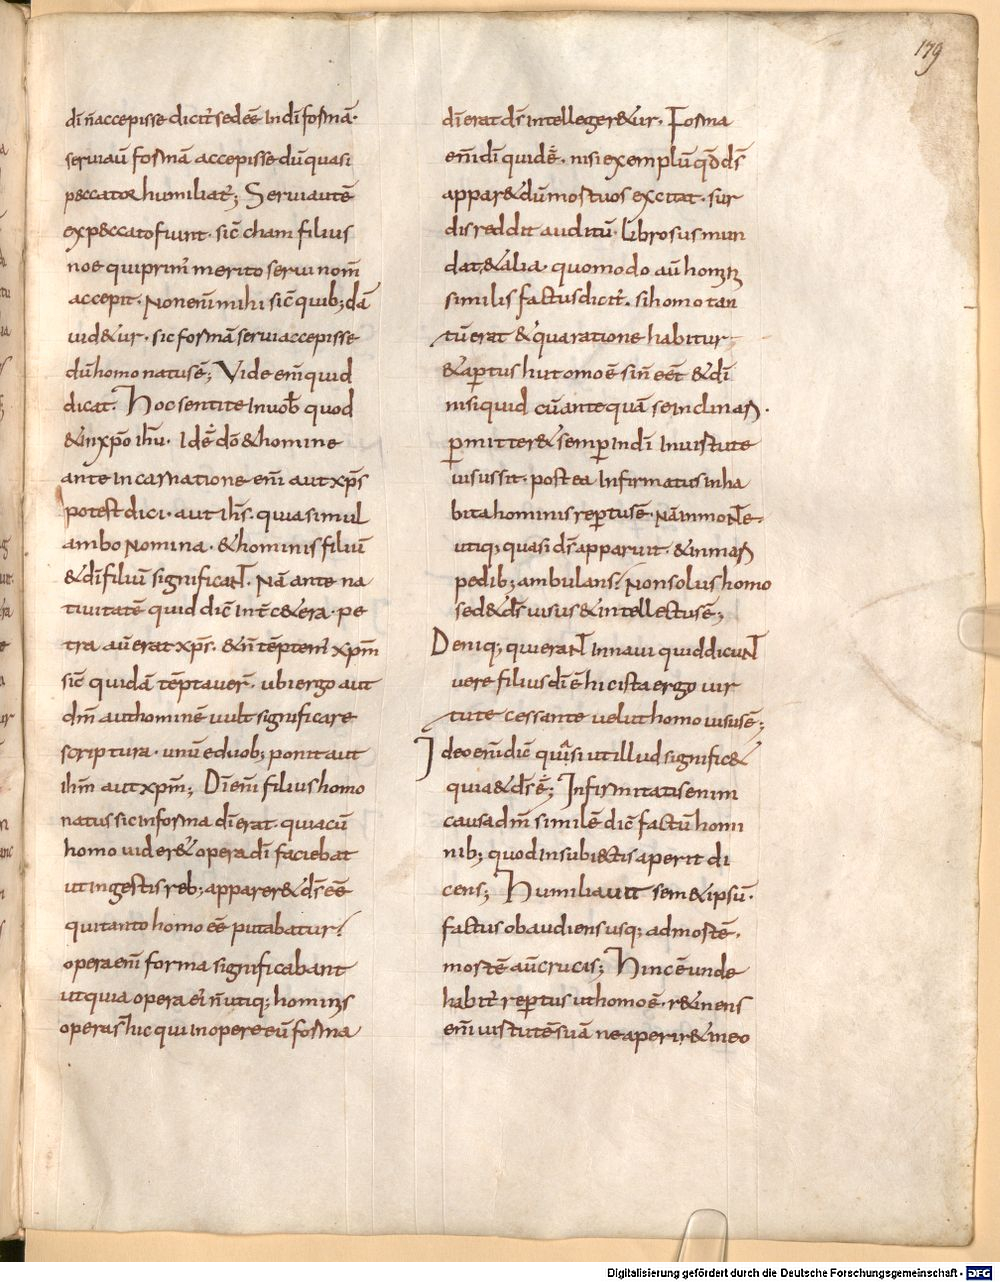 179
dī n̄ accepisse dicit̄ sed eē in dī forma·
serui aū formā accepisse dū quasi
peccator humiliat̄; Serui autē
ex peccato fiunt· sic̄ cham filius
noe qui prim̄ merito serui nom̄
accepit· Non enī mihi sic̄ quib; dā
uid&ur· sic formā serui accepisse
dū homo natus ē; Vide enī quid
dicat· Hoc sentite in uob̄ quod
& in xp̄o ih̄u· Idē dō & homine
ante incarnatione enī aut xp̄s
potest dici· aut ih̄s· quia simul
ambo nomina· & hominis filiū
& dī filiū significaN̄T· Nā ante na
tiuitatē quid dic̄ int̄ c&era· pe
tra aū erat xp̄s· & n̄ tēptem̄ xp̄m
sic̄ quidā tēptauer̄· ubi ergo aut
dm̄ aut hominē uult significare
scriptura· unū e duob; ponit aut
ih̄m aut xp̄m; Dī enī filius homo
natus sic in forma dī erat· quia cū
homo uider& opera dī faciebat
ut in gestis reb; apparer& ds̄ eē
qui tanto homo eē putabatur;
opera enī forma significabant
ut quia opera ei n̄ utiq; hominis
opera s̄ hic qui in opere eū forma
dī erat ds̄ intelleger&ur· Forma
enī dī quid ē· nisi exemplū qd̄ ds̄
appar& dū mortuos excitat· sur
dis reddit auditū· lībrosus mun
dat· & alia· quomodo aū homīz
similis factus dicit̄· si homo tan
tū erat & qua ratione habitur
& aptus hut omo ē si n̄ eēt & dī
nisi quid cū ante quā se inclinar&·
p̄mitter& semp̄ in dī in uirtute
uisus sit· postea infirmatus in ha
bita hominis rep̄tus ē· Nā in moN̄Te·
utiq; quasi ds̄ apparuit· & in mar̄
pedib; ambulans; Non solus homo
sed & ds̄ uisus & intellectus ē;
Deniq; qui eraN̄T in naui quid dicuN̄T
uere filius dī ē hic ista ergo uir
tute cessante uelut homo uisus ē;
Ideo enī dic̄ quasi ut illud signific&
quia & ds̄ ē; Infirmitatis enim
causa dm̄ similē dic̄ factū homi
nib; quod in subiectis aperit di
cens; Humiliauit sem&ipsū·
factus obaudiens usq; ad mortē·
mortē aū crucis; Hinc ē unde
habit̄ rep̄tus ut homo ē· r&inens
enī uirtutē suā ne aperir& in eo
Digitalisierung gefördert durch die Deutsche Forschungsgemeinschaft - DFG